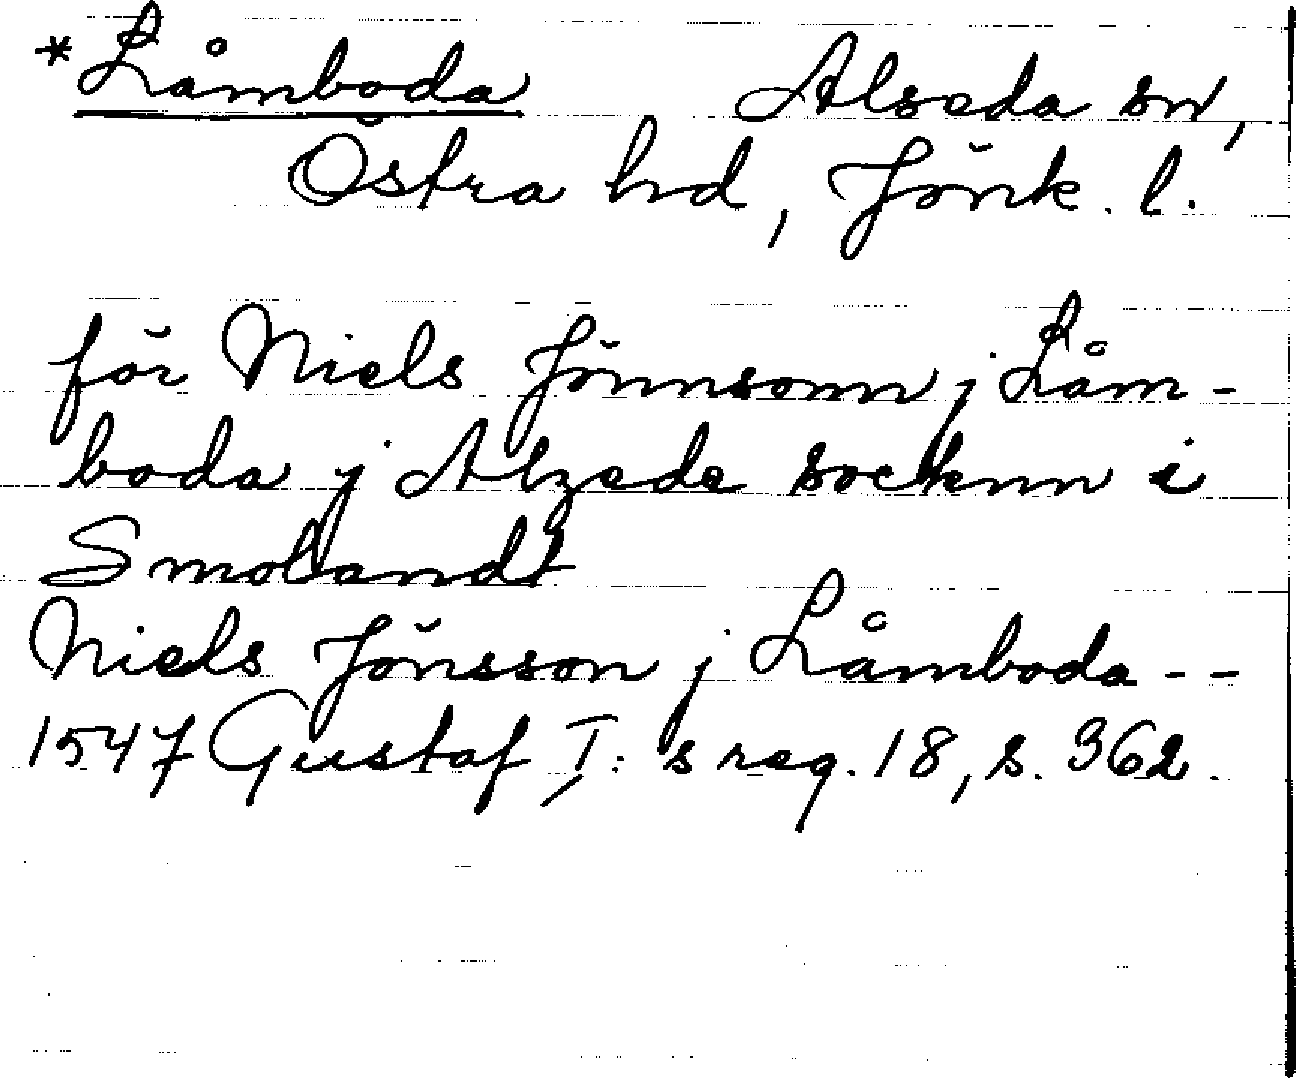 *Låmboda Alseda sn,
Östra hd, Jönk. l.
för Niels Jönnsonn j Låm-
boda j Alzede socknn i
Smolandt
Niels Jönsson j Låmboda --
1547 Gustaf I:s reg. 18, s. 362.